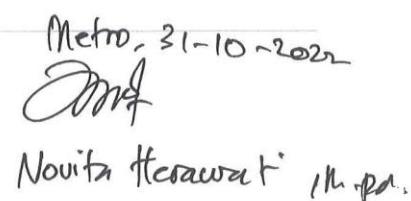 Metro, 31-10-2022
Novita Herawati, M.Pd.